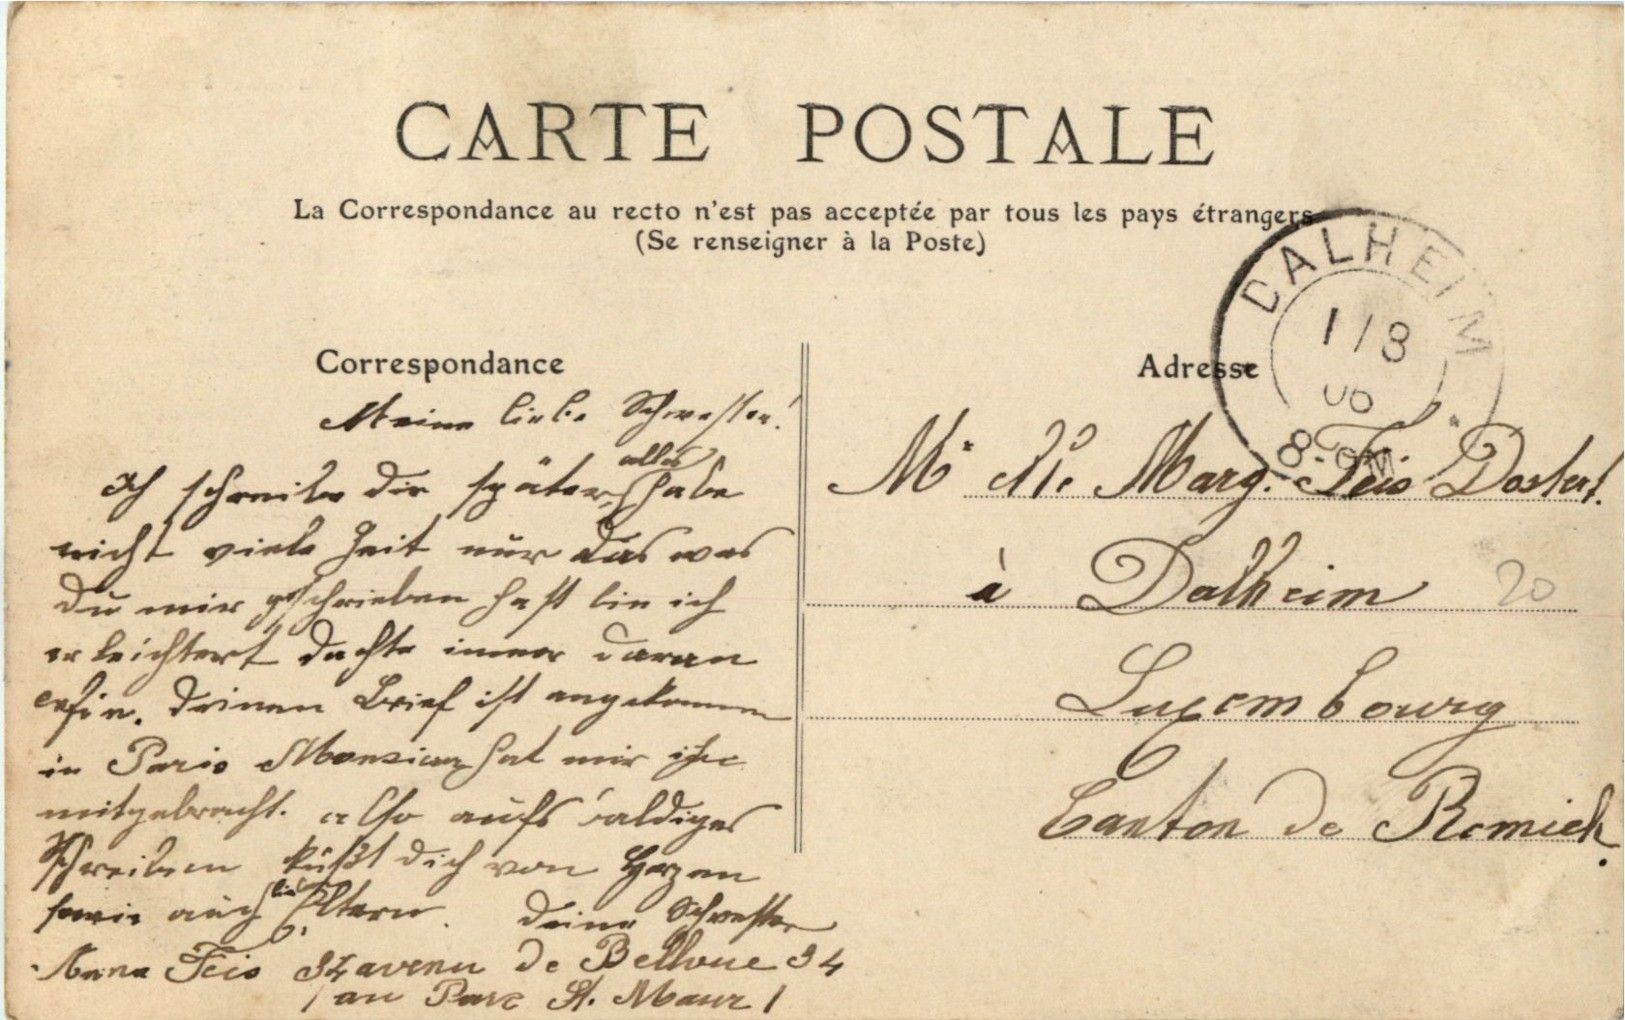 CARTE POSTALE
La Correspondance au recto n'est pas acceptée par tous les pays étrangers
(Se renseigner à la Poste)
Correspondance
Adresse
DALHEIM
1/8
06
8-9M
Meine liebe Schwester!
alles
Ich schreibe dir später, habe
nicht viele Zeit nur das was
du mir geschrieben hast bin ich
erleichtert dachte immer daran
deinen Brief ist angekommen
in Paris Monsieur hat mir ihn
mitgebracht. also aufs baldiges
Schreiben küßt dich von Herzen
sowie auch Eltern. deine Schwester
Anna Feis 34 avenu de Bellvue 34
(au Parc St. Maur)
Marg. Feis Dostert.
à Dalheim
20
Luxembourg
Canton de Remich.